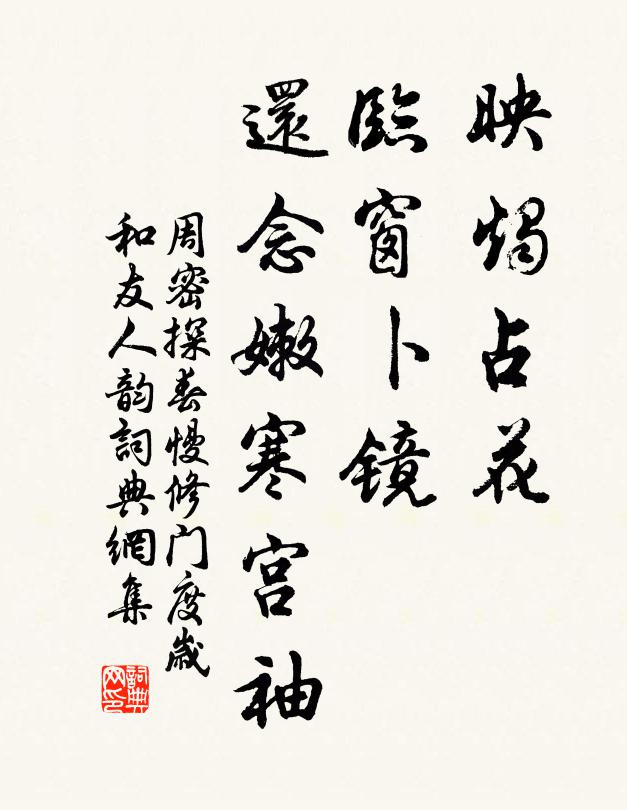 映烛占花
臨窗卜镜
還念嫩寒宫袖
周密探春慢修门度歲
和友人韵詞典網集
詞典网印